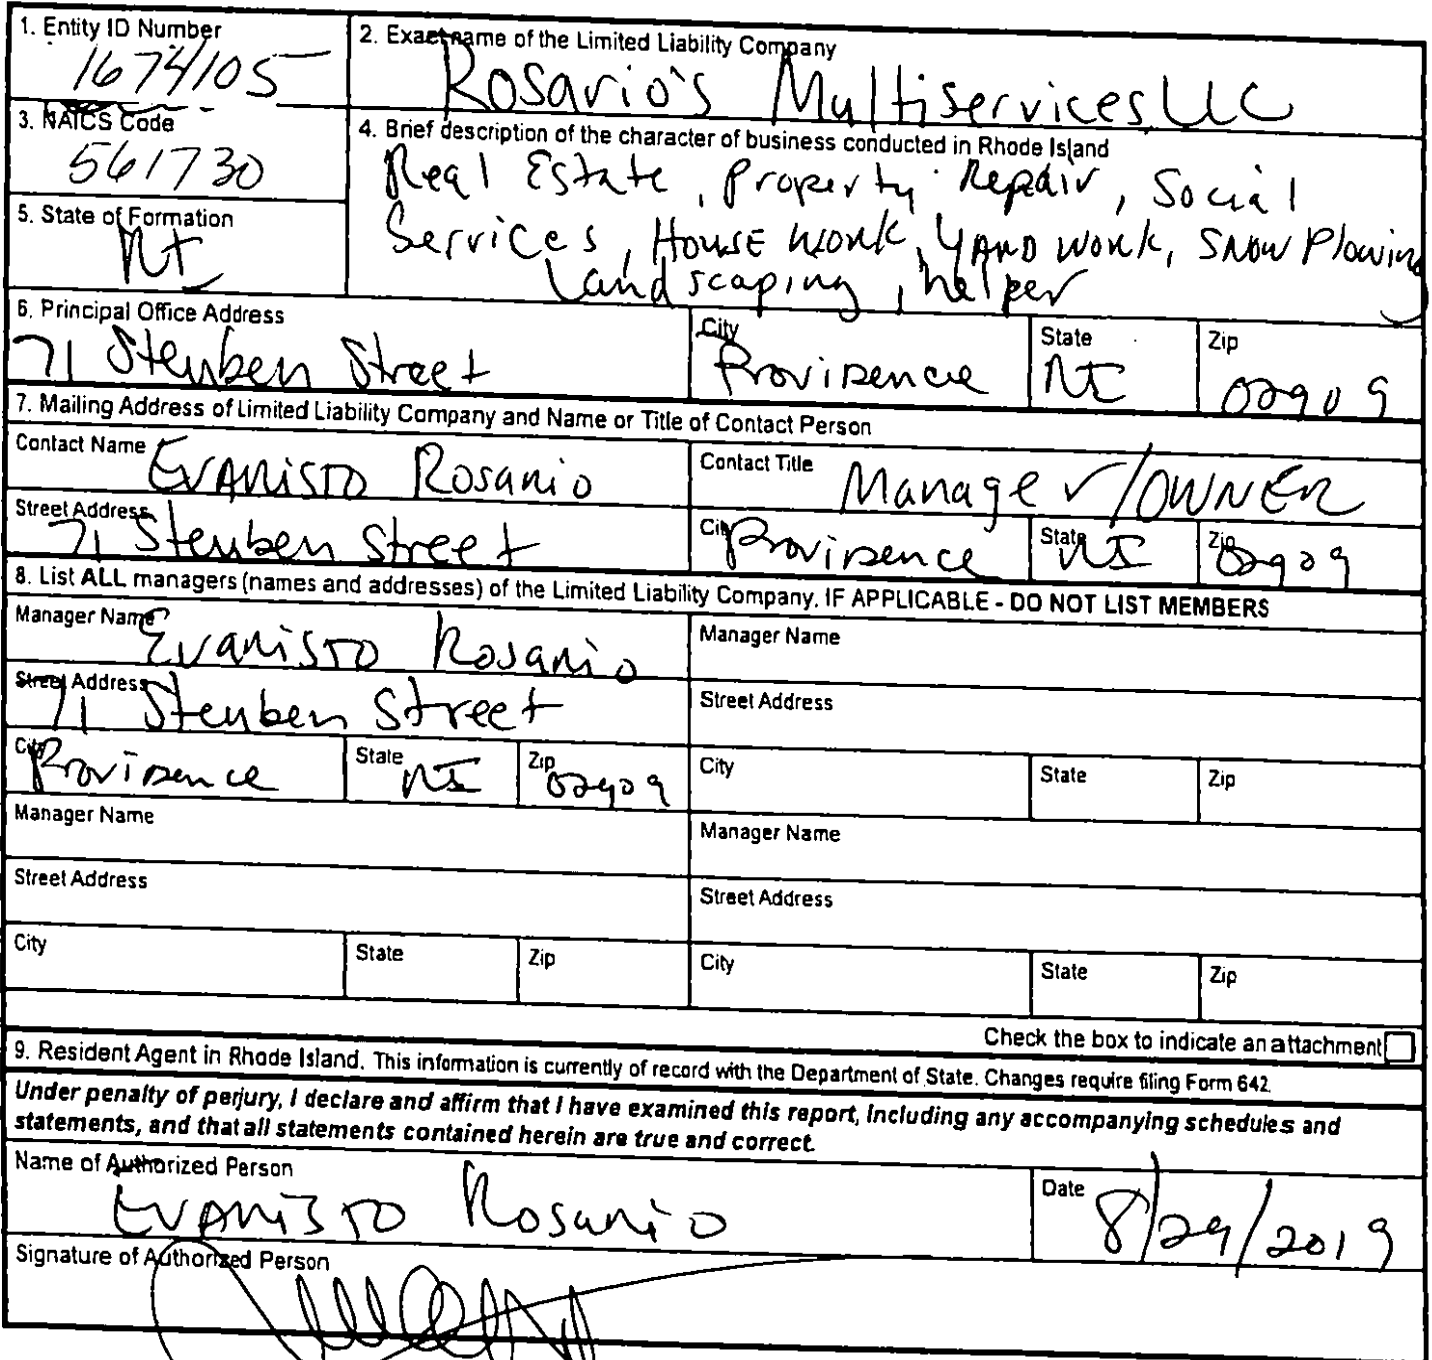 1. Entity ID Number
1674105
2. Exact name of the Limited Liability Company
Rosario's Multiservices LLC
3. NAICS Code
561730
4. Brief description of the character of business conducted in Rhode Island
Real Estate, Property Repair, Social
Services, House work, YARD work, Snow Plowing
Landscaping, helper
5. State of Formation
RI
6. Principal Office Address
71 Steuben Street
City
Providence
State
RI
Zip
02909
7. Mailing Address of Limited Liability Company and Name or Title of Contact Person
Contact Name
Evaristo Rosario
Contact Title
Manager/OWNER
Street Address
71 Steuben Street
City
Providence
State
RI
Zip
02909
8. List ALL managers (names and addresses) of the Limited Liability Company, IF APPLICABLE - DO NOT LIST MEMBERS
Manager Name
Evaristo Rosario
Manager Name
Street Address
71 Steuben Street
Street Address
City
Providence
State
RI
Zip
02909
City
State
Zip
Manager Name
Manager Name
Street Address
Street Address
City
State
Zip
City
State
Zip
Check the box to indicate an attachment
9. Resident Agent in Rhode Island. This information is currently of record with the Department of State. Changes require filing Form 642.
Under penalty of perjury, I declare and affirm that I have examined this report, including any accompanying schedules and
statements, and that all statements contained herein are true and correct.
Name of Authorized Person
Evaristo Rosario
Date
8/29/2019
Signature of Authorized Person